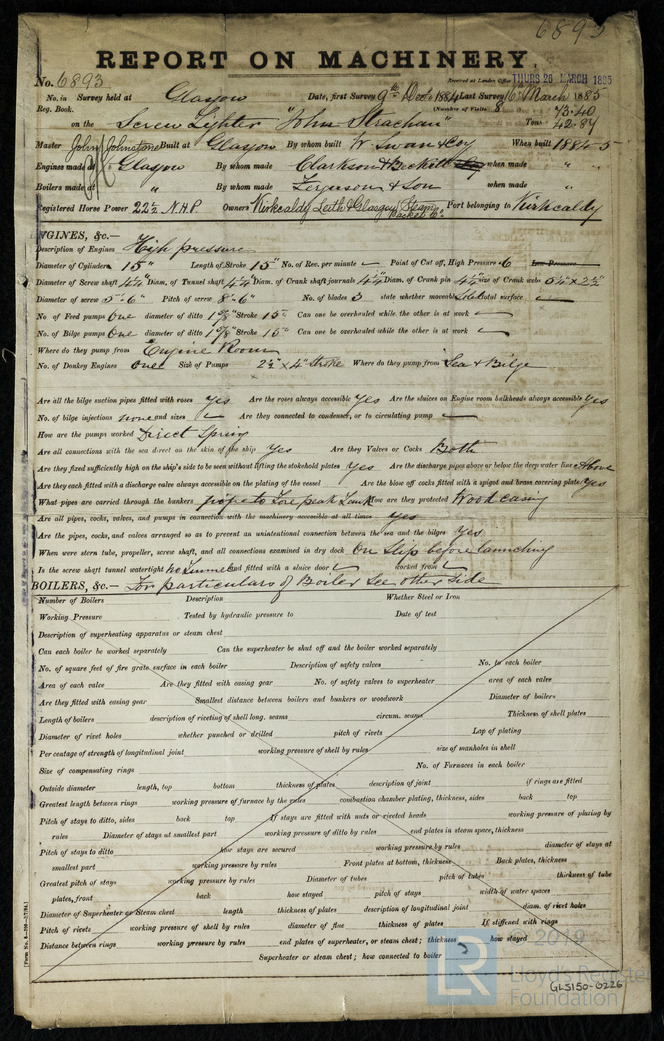 6893
REPORT ON MACHINERY.
No. 6893 Received at London Office THURS 26 MARCH 1885
No. in Survey held at Glasgow Date, first Survey 9th Decr 1884 Last Survey 16th March 1885
Reg. Book. (Number of Visits 8 73.40
on the Screw Lighter "John Strachan" Tons 42.87
Master John Johnstone Built at Glasgow By whom built W. Swan & Coy When built 1884-5
Engines made at Glasgow By whom made Clarkson & Beckett when made " "
Boilers made at " By whom made Ferguson & Son when made "
Registered Horse Power 22½ N.H.P Owners Kirkcaldy Leith & Glasgow Steam Packet Co Port belonging to Kirkcaldy
ENGINES, &c.—
Description of Engines High pressure
Diameter of Cylinders 15" Length of Stroke 15" No. of Rev. per minute Point of Cut off, High Pressure 6 Low Pressure
Diameter of Screw shaft 4¼ Diam. of Tunnel shaft 4¼ Diam. of Crank shaft journals 4¼ Diam. of Crank pin 4½ size of Crank webs
Diameter of screw 5'-6" Pitch of screw 8'-6" No. of blades 3 state whether moveable Solid total surface
No. of Feed pumps One diameter of ditto Stroke 15" Can one be overhauled while the other is at work
No. of Bilge pumps One diameter of ditto Stroke 15" Can one be overhauled while the other is at work
Where do they pump from Engine Room
No. of Donkey Engines One Size of Pumps 2½" × 4" Stroke Where do they pump from Sea & Bilge
Are all the bilge suction pipes fitted with roses Yes Are the roses always accessible Yes Are the sluices on Engine room bulkheads always accessible Yes
No. of bilge injections none and sizes Are they connected to condenser, or to circulating pump
How are the pumps worked Direct Spring
Are all connections with the sea direct on the skin of the ship Yes Are they Valves or Cocks Both
Are they fixed sufficiently high on the ship's side to be seen without lifting the stokehold plates Yes Are the discharge pipes above or below the deep water line Above
Are they each fitted with a discharge valve always accessible on the plating of the vessel Are the blow off cocks fitted with a spigot and brass covering plate Yes
What pipes are carried through the bunkers pipe to Fore peak Tank How are they protected Wood casing
Are all pipes, cocks, valves, and pumps in connection with the machinery accessible at all times Yes
Are the pipes, cocks, and valves arranged so as to prevent an unintentional connection between the sea and the bilges Yes
When were stern tube, propeller, screw shaft, and all connections examined in dry dock On Slip before launching
Is the screw shaft tunnel watertight no Tunnel and fitted with a sluice door worked from
BOILERS, &c.— For particulars of Boiler See other side
Number of Boilers Description Whether Steel or Iron
Working Pressure Tested by hydraulic pressure to Date of test
Description of superheating apparatus or steam chest
Can each boiler be worked separately Can the superheater be shut off and the boiler worked separately
No. of square feet of fire grate surface in each boiler Description of safety valves No. to each boiler
Area of each valve Are they fitted with easing gear No. of safety valves to superheater area of each valve
Are they fitted with easing gear Smallest distance between boilers and bunkers or woodwork Diameter of boilers
Length of boilers description of riveting of shell long. seams circum. seams Thickness of shell plates
Diameter of rivet holes whether punched or drilled pitch of rivets Lap of plating
Percentage of strength of longitudinal joint working pressure of shell by rules size of manholes in shell
Size of compensating rings No. of Furnaces in each boiler
Outside diameter length, top bottom thickness of plates description of joint if rings are fitted
Greatest length between rings working pressure of furnace by the rules combustion chamber plating, thickness, sides back top
Pitch of stays to ditto, sides back top If stays are fitted with nuts or riveted heads working pressure of plating by
rules Diameter of stays at smallest part working pressure of ditto by rules end plates in steam space, thickness
Pitch of stays to ditto how stays are secured working pressure by rules diameter of stays at
smallest part working pressure by rules Front plates at bottom, thickness Back plates, thickness
Greatest pitch of stays working pressure by rules Diameter of tubes pitch of tubes thickness of tube
plates, front back how stayed pitch of stays width of water spaces
Diameter of Superheater or Steam chest length thickness of plates description of longitudinal joint diam. of rivet holes
Pitch of rivets working pressure of shell by rules diameter of flue thickness of plates If stiffened with rings
Distance between rings working pressure by rules end plates of superheater, or steam chest; thickness how stayed
Superheater or steam chest; how connected to boiler
© 2019
Lloyd's Register
Foundation
LR
GLS150-0226